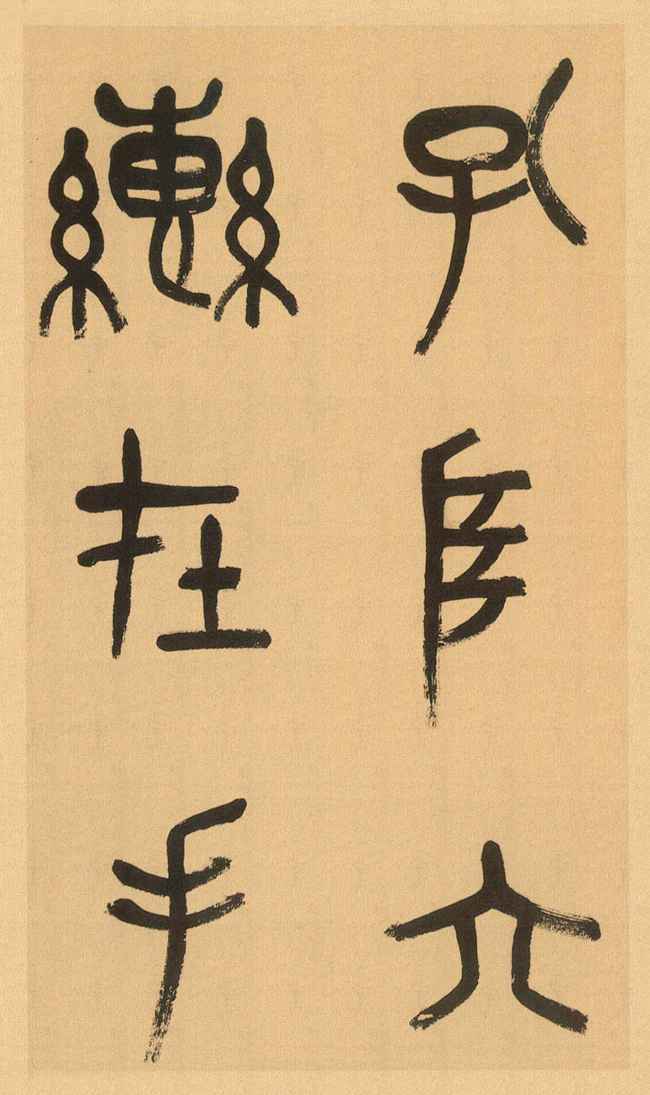 孔阜六
轡在手